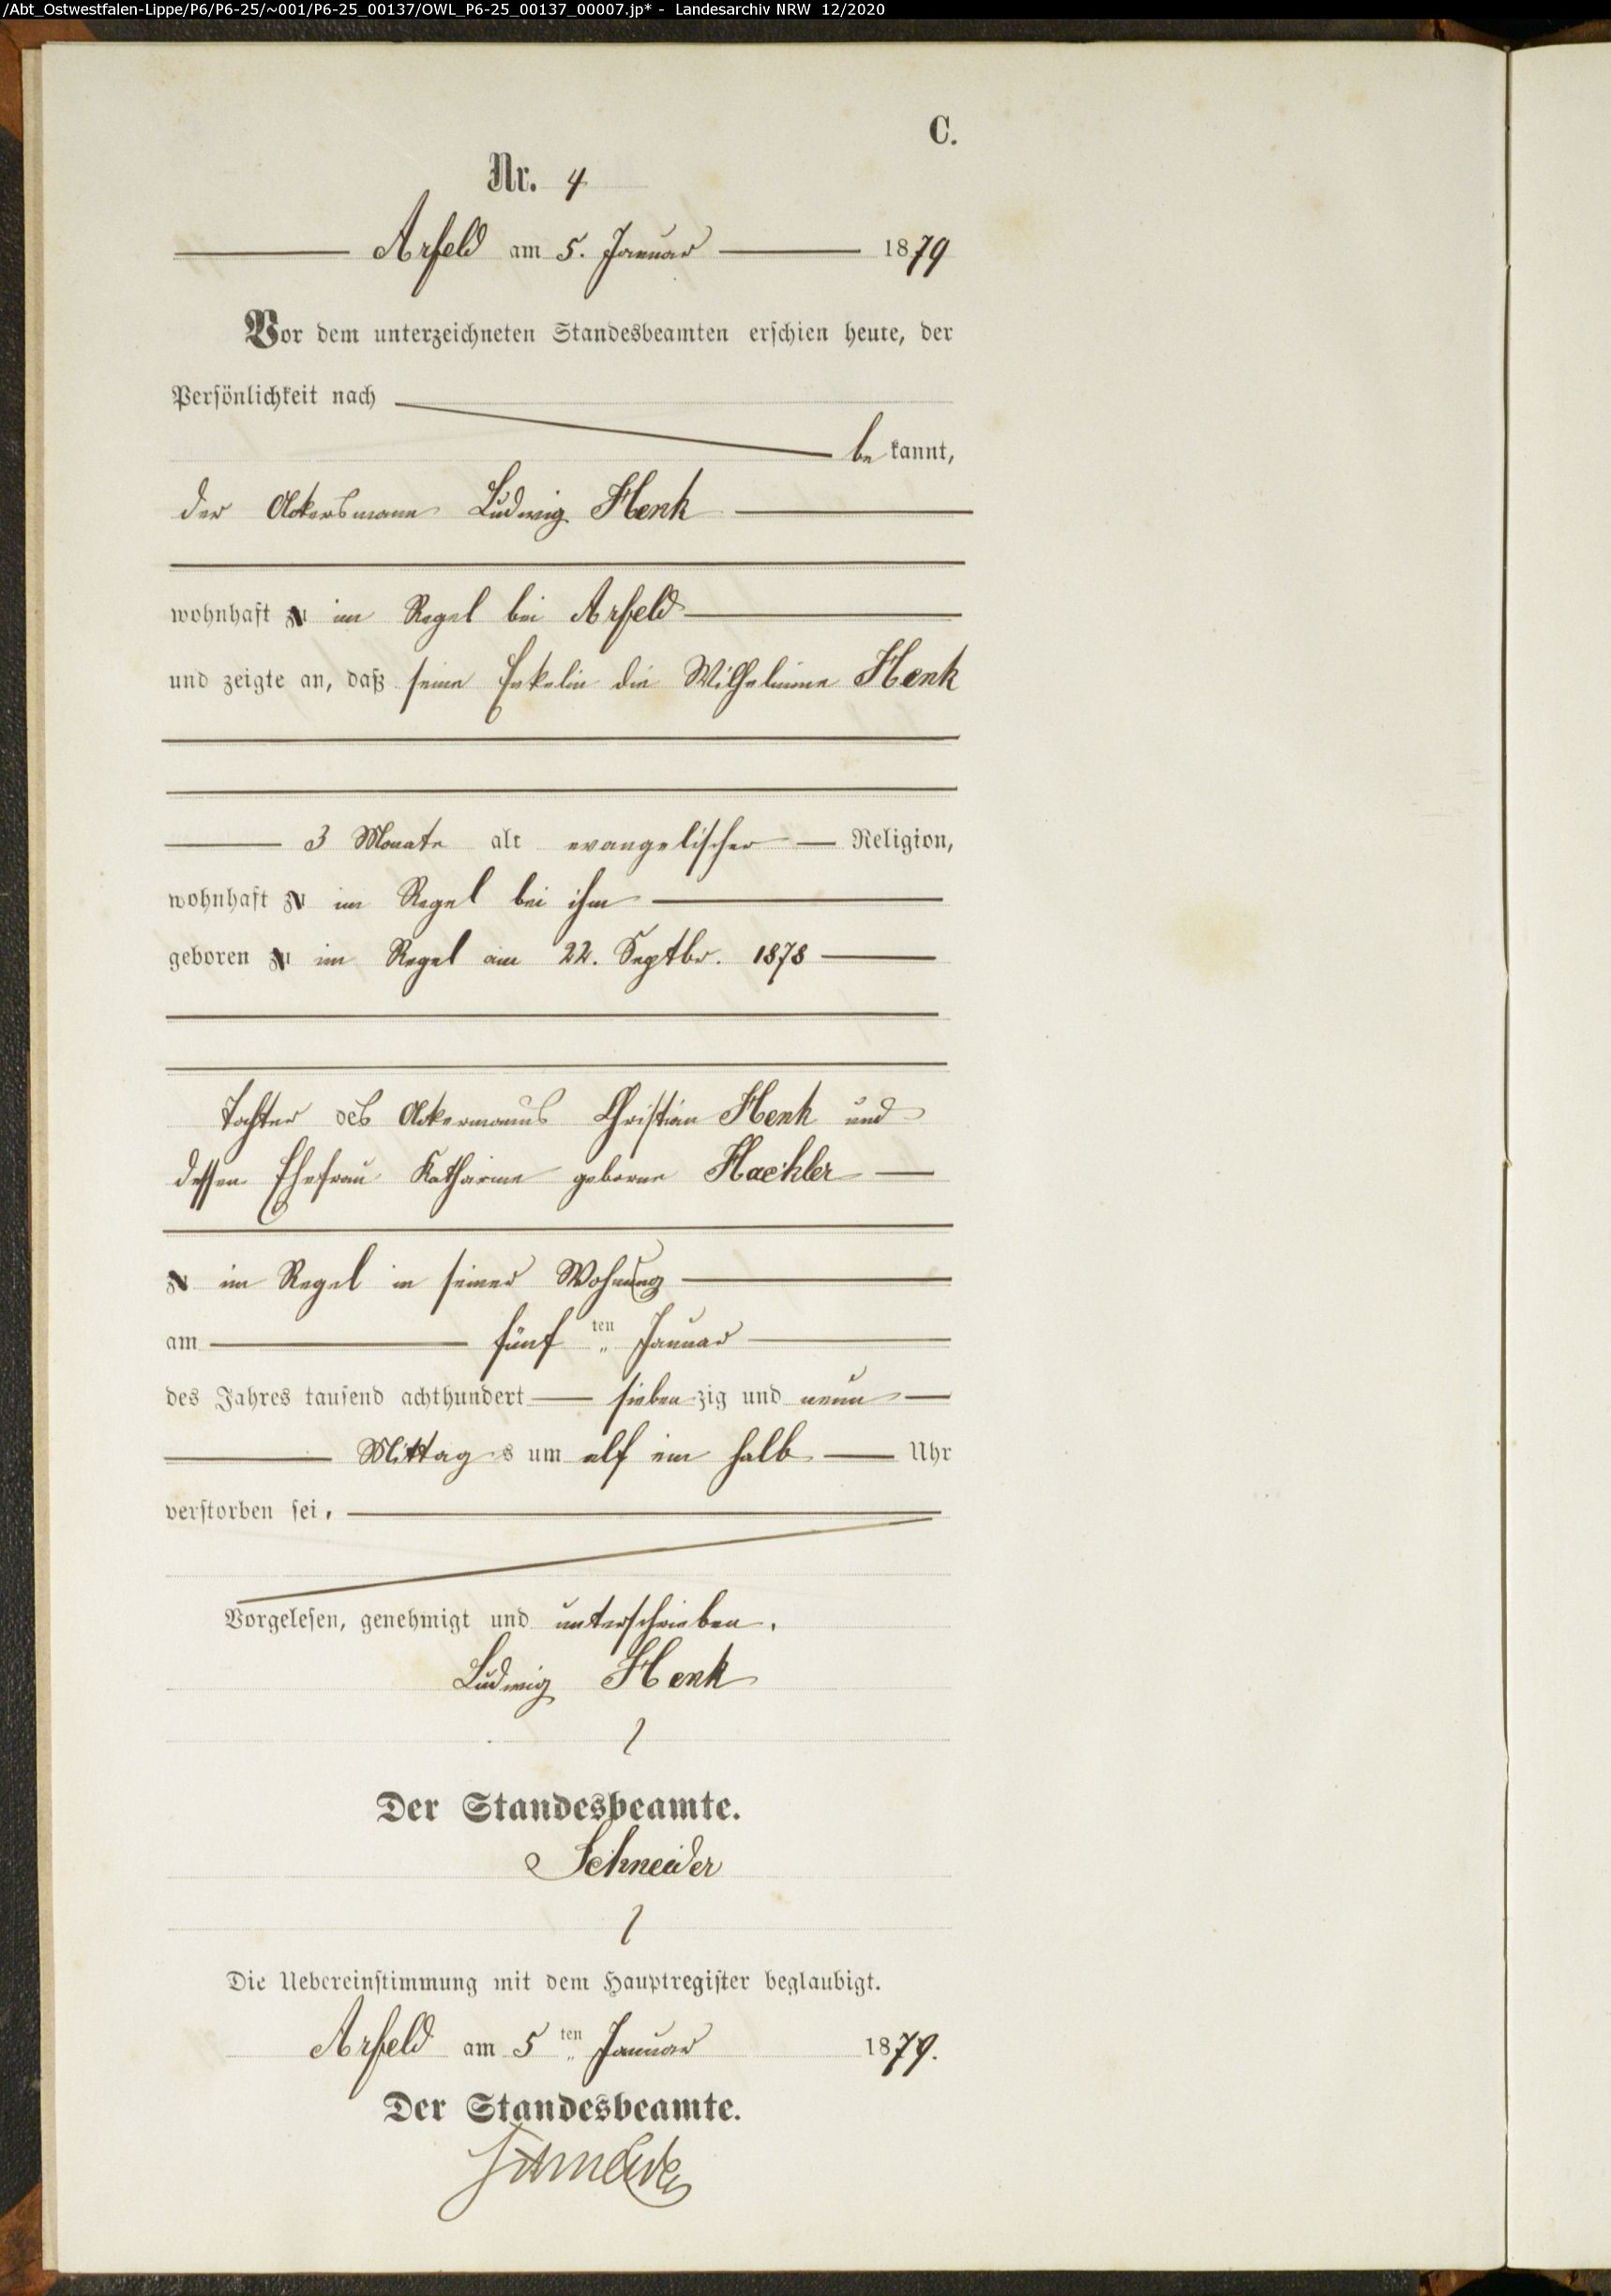 /Abt_Ostwestfalen-Lippe/P6/P6-25/~001/P6-25_00137/OWL_P6-25_00137_00007.jp* - Landesarchiv NRW 12/2020
C.
Nr. 4
Arfeld am 5. Januar 1879
Vor dem unterzeichneten Standesbeamten erschien heute, der
Persönlichkeit nach
bekannt,
der Ackersmann Ludwig Henk
wohnhaft zu im Regel bei Arfeld
und zeigte an, daß seine Enkelin die Wilhelmine Henk
3 Monate alt evangelischer Religion,
wohnhaft zu im Regel bei ihm
geboren zu im Regel am 22. Septbr. 1878
Tochter des Ackermanns Christian Henk und
dessen Ehefrau Katharine geborne Hackler
zu im Regel in seiner Wohnung
am fünf ten Januar
des Jahres tausend achthundert siebenzig und neun
Mittags um elf ein halb Uhr
verstorben sei.
Vorgelesen, genehmigt und unterschrieben.
Ludwig Henk
Der Standesbeamte.
Schneider
Die Uebereinstimmung mit dem Hauptregister beglaubigt.
Arfeld am 5ten Januar 1879.
Der Standesbeamte.
Schneider